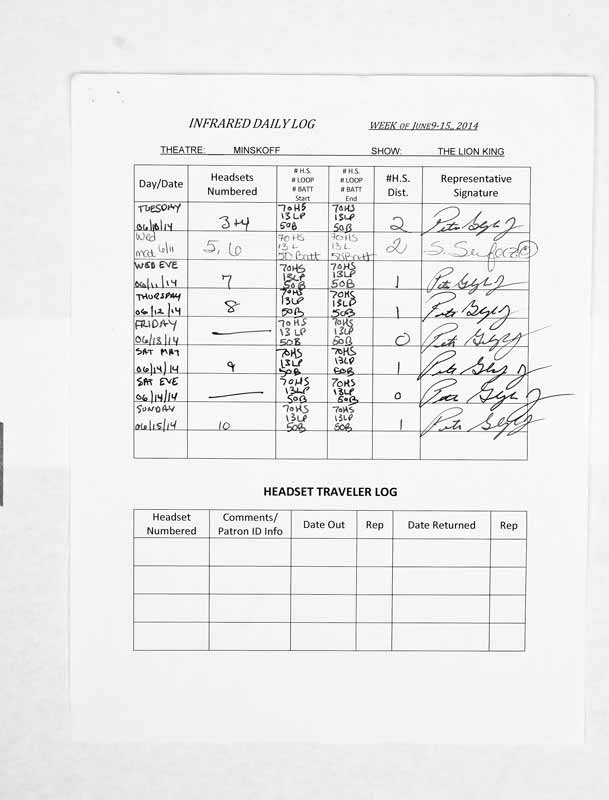 INFRARED DAILY LOG WEEK OF JUNE9-15, 2014
THEATRE: MINSKOFF SHOW: THE LION KING
Day/Date Headsets Numbered # H.S. # LOOP # BATT Start # H.S. # LOOP # BATT End #H.S. Dist. Representative Signature
TUESDAY 06/10/14 3+4 70HS 13LP 50B 70HS 13LP 50B 2
Wed mat 6/11 5, 6 70HS 13L 50Batt 70HS 13L 50Batt 2 S.
WED EVE 06/11/14 7 70HS 13LP 50B 70HS 13LP 50B 1
THURSDAY 06/12/14 8 70HS 13LP 50B 70HS 13LP 50B 1
FRIDAY 06/13/14 — 70HS 13LP 50B 70HS 13LP 50B 0
SAT MAT 06/14/14 9 70HS 13LP 50B 70HS 13LP 50B 1
SAT EVE 06/14/14 — 70HS 13LP 50B 70HS 13LP 50B 0
SUNDAY 06/15/14 10 70HS 13LP 50B 70HS 13LP 50B 1
HEADSET TRAVELER LOG
Headset Numbered Comments/ Patron ID Info Date Out Rep Date Returned Rep